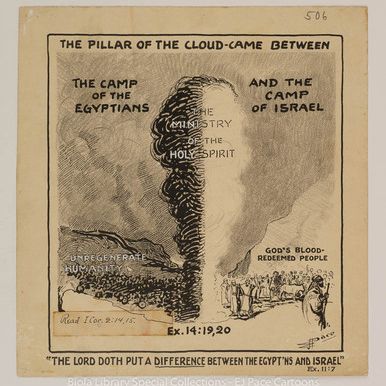 506
THE PILLAR OF THE CLOUD-CAME BETWEEN
THE CAMP
OF THE
EGYPTIANS
AND THE
CAMP
OF ISRAEL
THE
MINISTRY
OF THE
HOLY SPIRIT
UNREGENERATE
HUMANITY
GOD'S BLOOD-
REDEEMED PEOPLE
Read I Cor. 2:14,15.
Ex.14:19,20
Pace
"THE LORD DOTH PUT A DIFFERENCE BETWEEN THE EGYPT'NS AND ISRAEL"
Ex. 11:7
Biola Library Special Collections - EJ Pace Cartoons